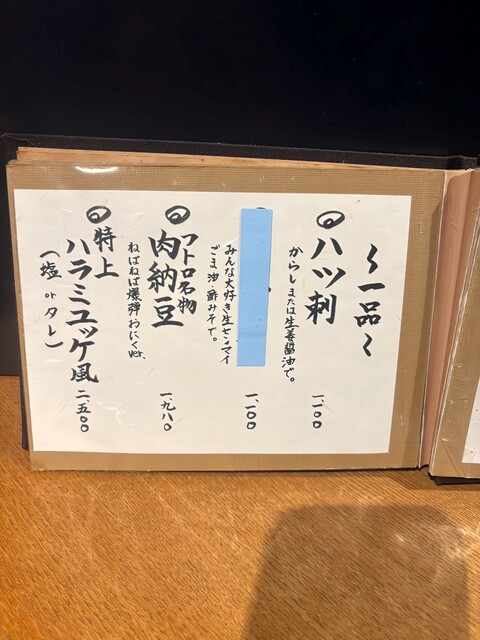 〜一品〜
◎ハツ刺
からしまたは生姜醤油で。
一、一〇〇
みんな大好き生センマイ
ごま油・酢みそで。
一、一〇〇
◎ワトロ名物
肉納豆
ねばねば爆弾おにくver.
一、九八〇
◎特上
ハラミユッケ風
(塩 or タレ)
二、五〇〇